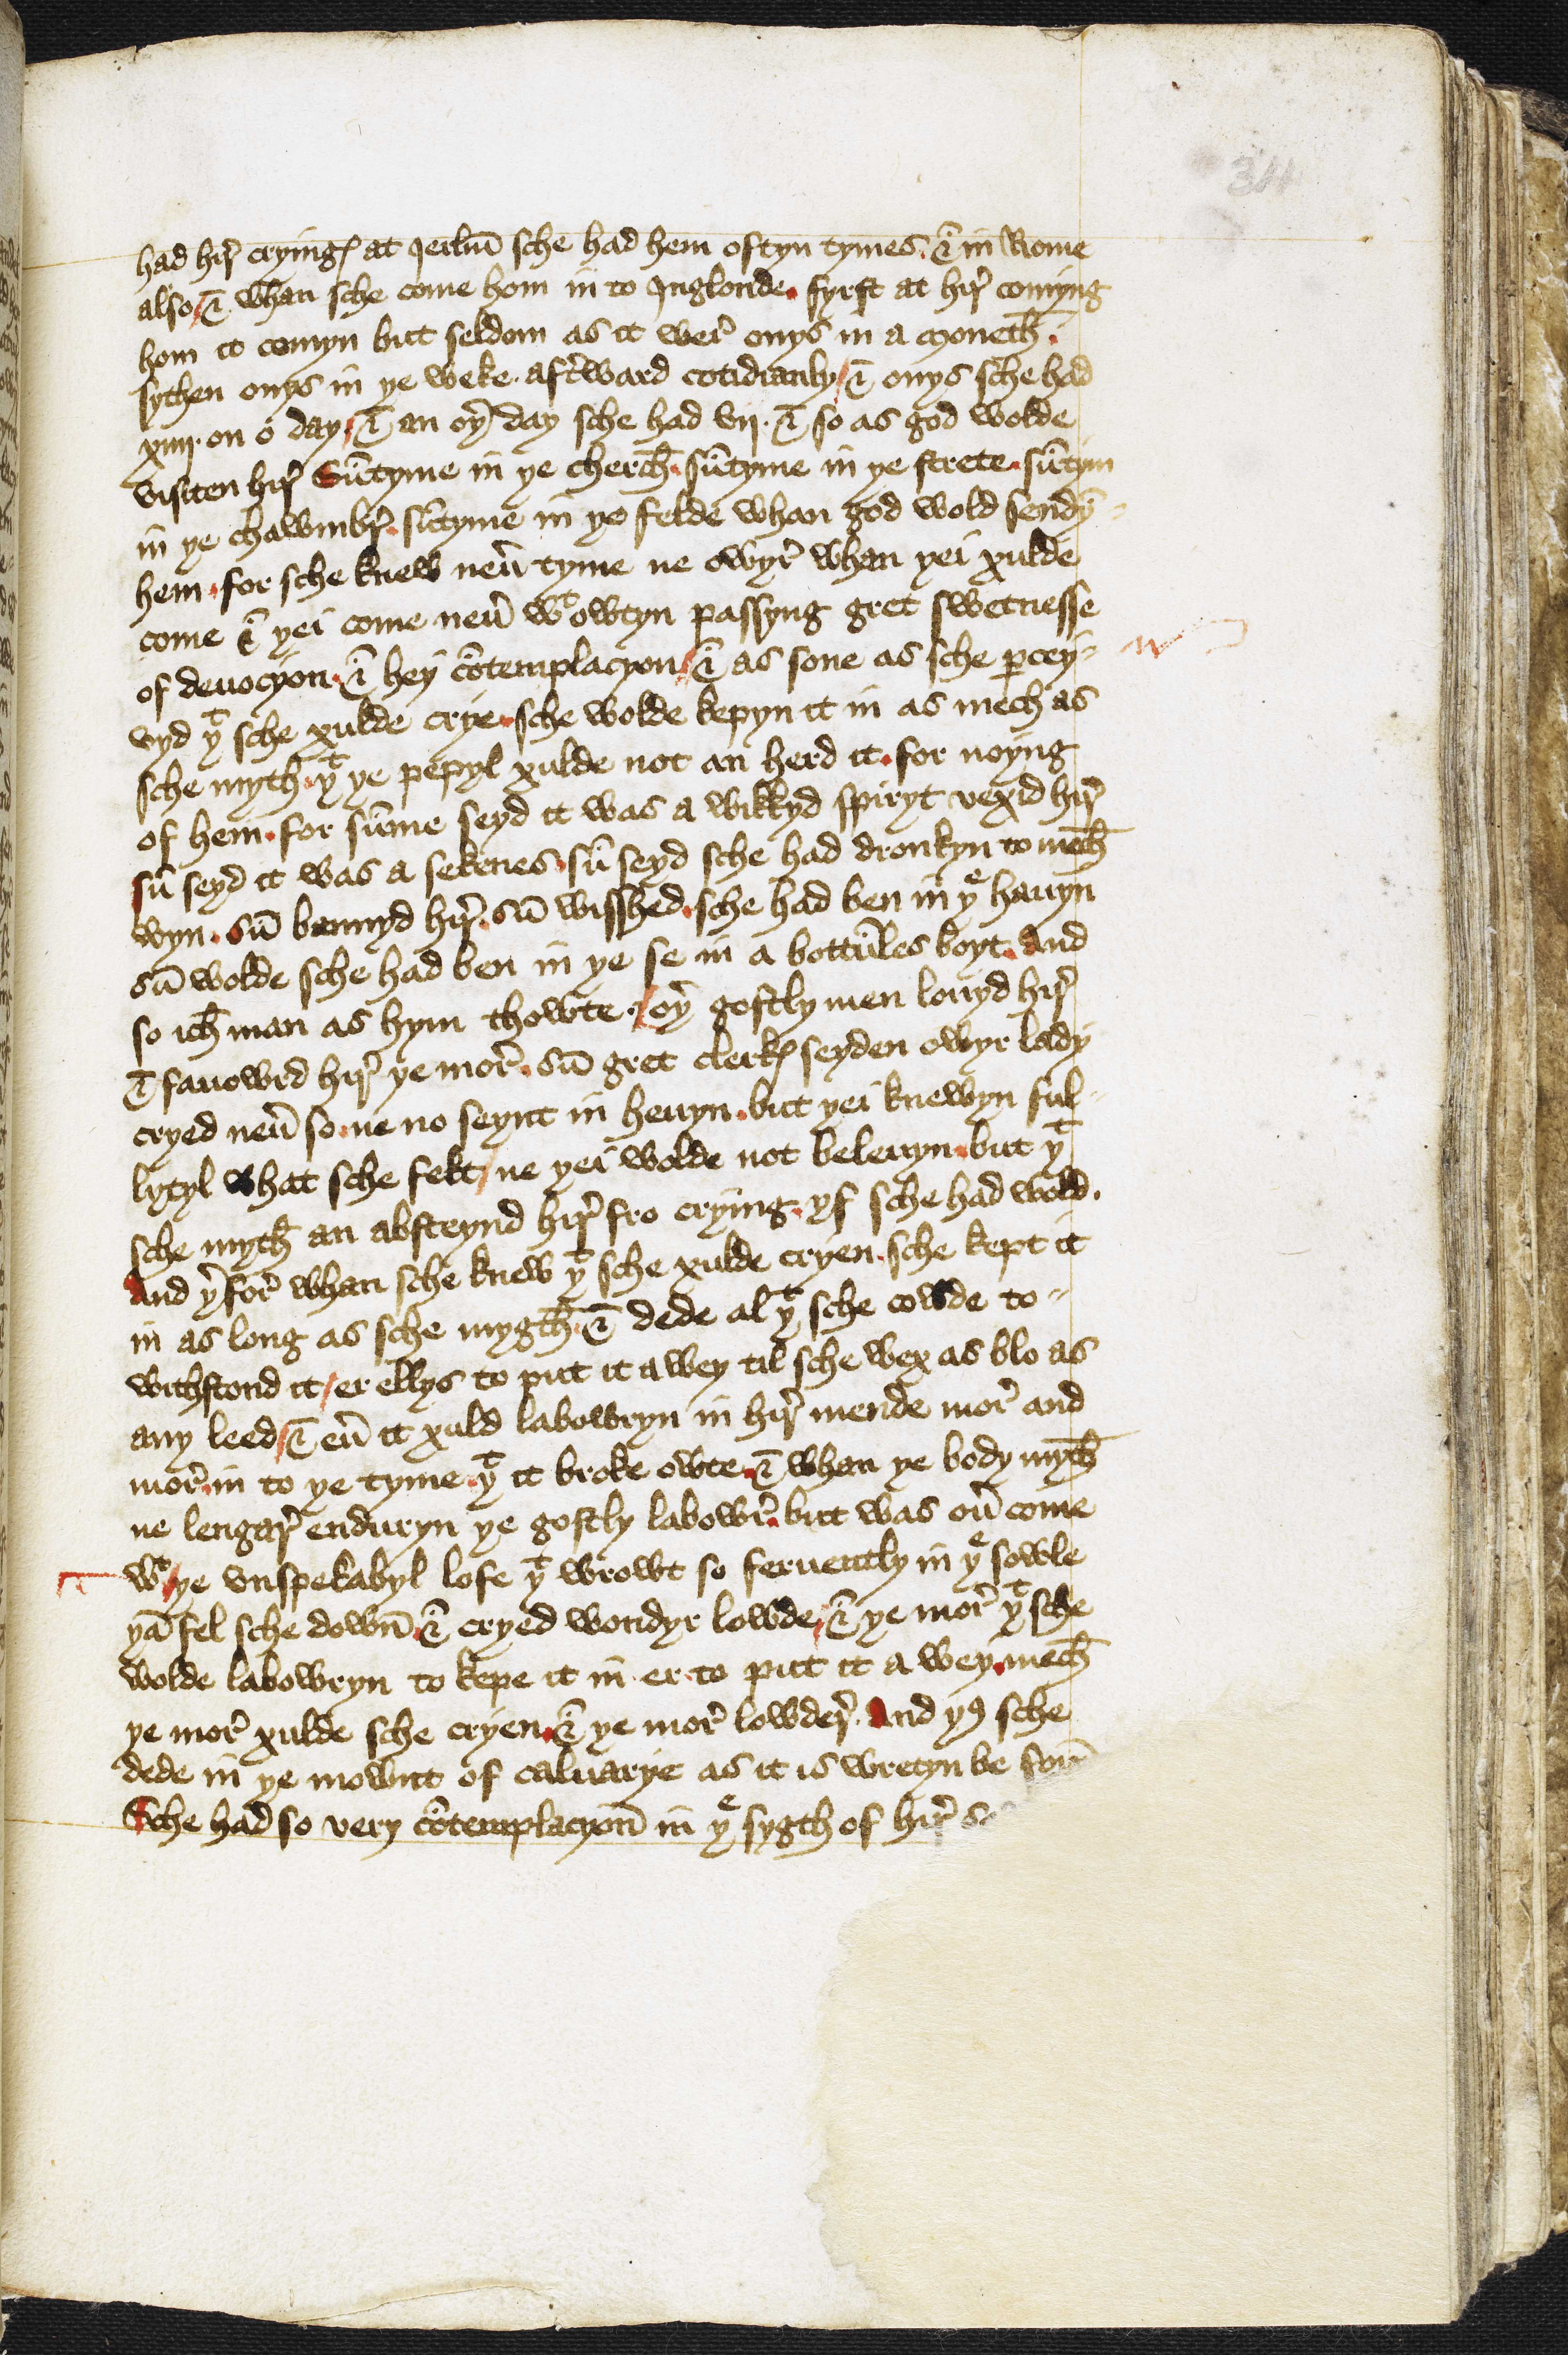 34
had hir̃ cryingꝭ at Jerlm̄ sche had hem oftyn tymes. & in Rome
also / & whan sche come hom in to Jnglonde. fyrst at hir̃ comyng
hom it comyn but seldom as it wer̃ onys in a moneth̄.
sythen onys in ye weke. aft̃ward cotidianly / & onys sche had
xiiij. on o day / & an oyr̃ day sche had vij. & so as god wolde
visiten hir̃ Sūtyme in ye cherch̄. sūtyme in ye strete. sūtym
in ye chawmbr̃. sūtyme in ye felde whan god wold sendyn̄
hem. for sche knew neũ tyme ne owyr̃ whan yei xulde
come & yei come neũ wᵗowtyn passyng gret swetnesse
of deuocyon. & hey cōtemplacyon / & as sone as sche ꝑcey-
uyd yᵗ sche xulde crye. sche wolde kepyn it in as mech as
sche myth̄. yᵗ ye pepyl xulde not an herd it. for noyng
of hem. for sūme seyd it was a wikkyd spiryt vexid hir̃
sū seyd it was a sekenes. sū seyd sche had dronkyn to mech̄
wyn. sū bannyd hir̃. sū wisshed. sche had ben in yᵉ hauyn
sū wolde sche had ben in ye se in a bottūles boyt. and
so ich̄ man as hym thowte. / oyr̃ gostly men louyd hir̃
& fauowrd hir̃ ye mor̃. sū gret clerkꝭ seyden owyr lady
cryed neũ so. ne no seynt in heuyn. but yei knewyn ful
lytyl what sche felt / ne yei wolde not beleuyn. but yᵗ
sche myth̄ an absteynd hir̃ fro crying. yf sche had wold.
And yr̃for̃ whan sche knew yᵗ sche xulde cryen. sche kept it
in as long as sche mygth̄. & dede al yᵗ sche cowde to-
withstond it / er ellys to put it a wey til sche wex as blo as
any leed / & eũ it xuld labowryn in hir̃ mende mor̃ and
mor̃. in to ye tyme. yᵗ it broke owte. & whan ye body myth̄
ne lengar̃ enduryn ye gostly labowr̃. but was oũ come
wᵗ / ye vnspekabyl lofe yᵗ wrowt so feruently in yᵉ sowle
yā fel sche down̄ & cryed wondyr lowde / & ye mor̃ yᵗ sche
wolde labowryn to kepe it in. er to put it a wey. mech̄
ye mor̃ xulde sche cryen. & ye mor̃ lowder̃. And yꝰ sche
dede in ye mownt of caluarye as it is wretyn be forn̄
Sche had so very cōtemplacyon̄ in yᵉ sygth of hir̃